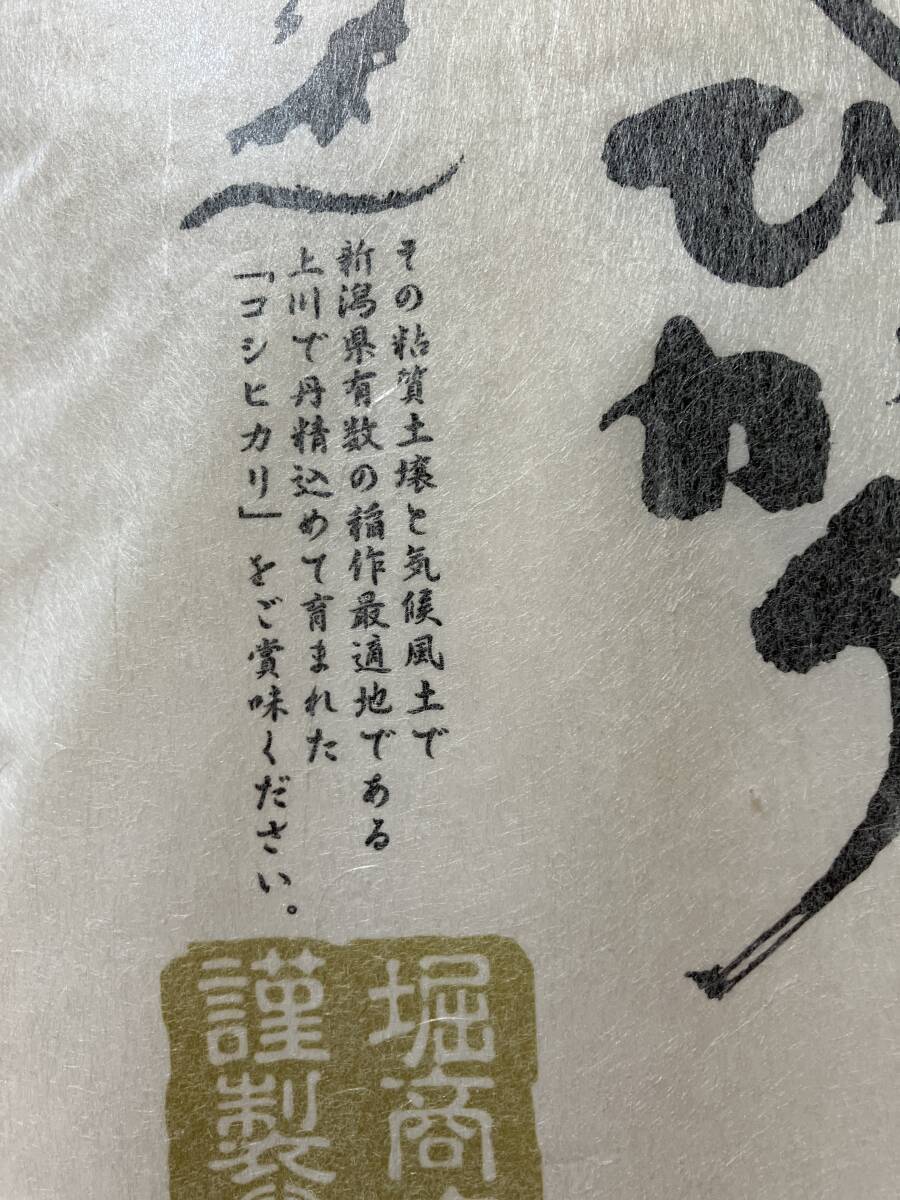 ひか
その粘質土壌と気候風土で
新潟県有数の稲作最適地である
上川で丹精込めて育まれた
「コシヒカリ」をご賞味ください。
堀商
謹製